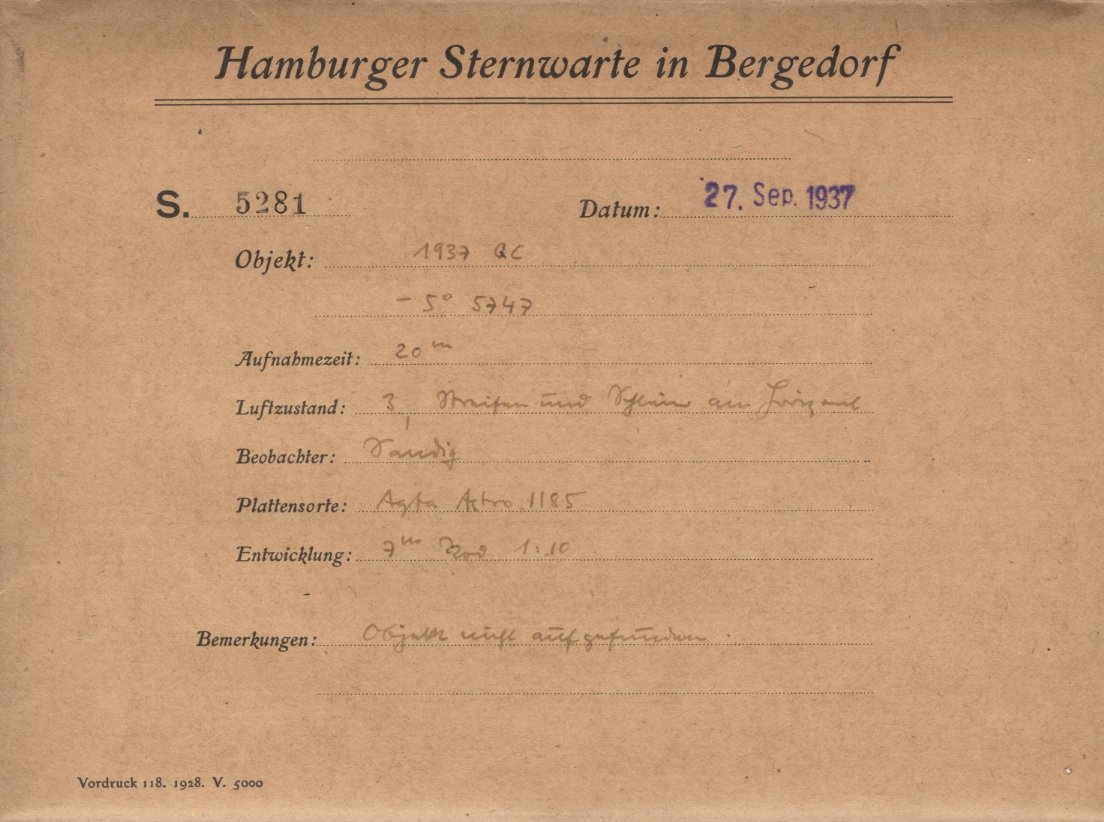 Hamburger Sternwarte in Bergedorf
S. 5281 Datum: 27. Sep. 1937
Objekt: 1937 QC
- 5° 5747
Aufnahmezeit: 20 m
Luftzustand: 3, Streifen und Schleier am Horizont
Beobachter: Sandig
Plattensorte: Agfa Astro 1185
Entwicklung: 7 m Rod 1:10
Bemerkungen: Objekt nicht aufgefunden.
Vordruck 118. 1928. V. 5000